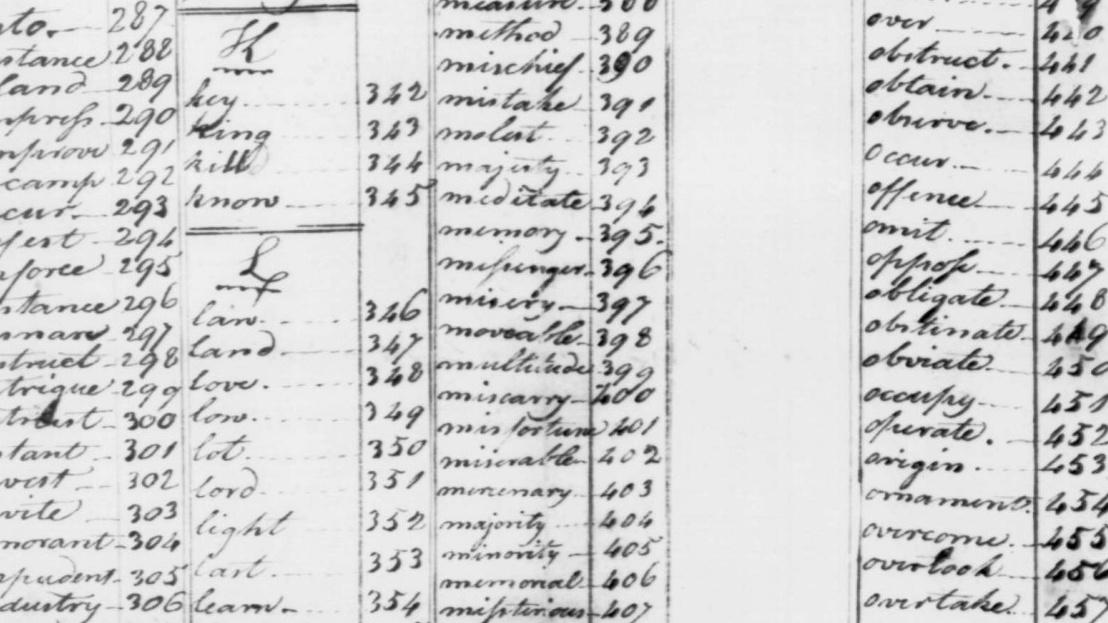 287
288
land 289
290
291
292
293
294
295
296
297
298
299
300
301
302
303
304
305
306
K
key 342
king 343
kill 344
know 345
L
law 346
land 347
love 348
low 349
lot 350
lord 351
light 352
last 353
learn 354
measure 388
method 389
mischief 390
mistake 391
molest 392
majesty 393
meditate 394
memory 395
messenger 396
misery 397
moveable 398
multitude 399
miscarry 400
misfortune 401
miserable 402
mercenary 403
majority 404
minority 405
memorial 406
misterious 407
over
obstruct 441
obtain 442
observe 443
occur 444
offence 445
omit 446
oppose 447
obligate 448
obstinate 449
obviate 450
occupy 451
operate 452
origin 453
ornament 454
overcome 455
overlook 456
overtake 457